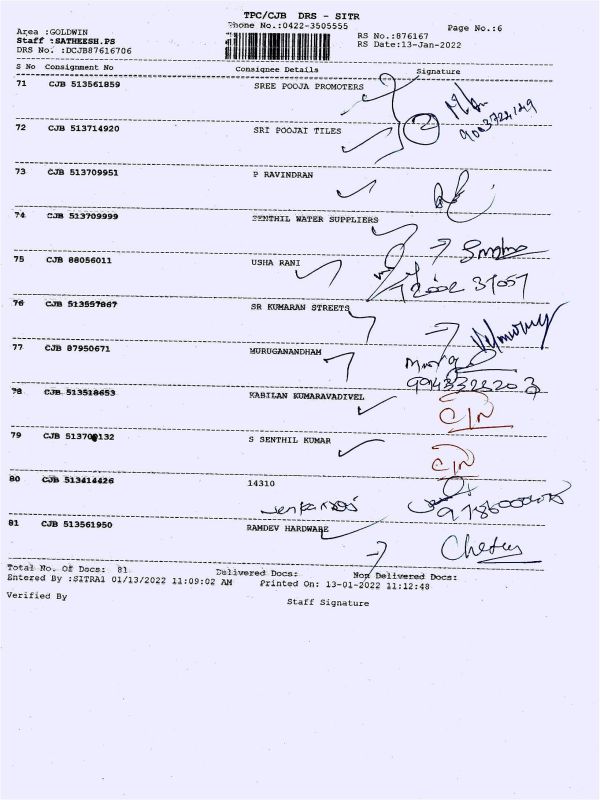 TPC/CJB DRS - SITR
Phone No.:0422-3505555
Page No.:6
Area :GOLDWIN
RS No.:876167
Staff :SATHEESH.PS
RS Date:13-Jan-2022
DRS No. :DCJB87616706
S No Consignment No Consignee Details Signature
71 CJB 513561859 SREE POOJA PROMOTERS
72 CJB 513714920 SRI POOJAI TILES
2
73 CJB 513709951 P RAVINDRAN
74 CJB 513709999 SENTHIL WATER SUPPLIERS
75 CJB 88056011 USHA RANI
76 CJB 513557867 SR KUMARAN STREETS
77 CJB 87950671 MURUGANANDHAM
78 CJB 513518653 KABILAN KUMARAVADIVEL
C/N
79 CJB 5137 132 S SENTHIL KUMAR
C/N
80 CJB 513414426 14310
81 CJB 513561950 RAMDEV HARDWARE
Total No. Of Docs: 81 Delivered Docs: Non Delivered Docs:
Entered By :SITRA1 01/13/2022 11:09:02 AM Printed On: 13-01-2022 11:12:48
Verified By
Staff Signature